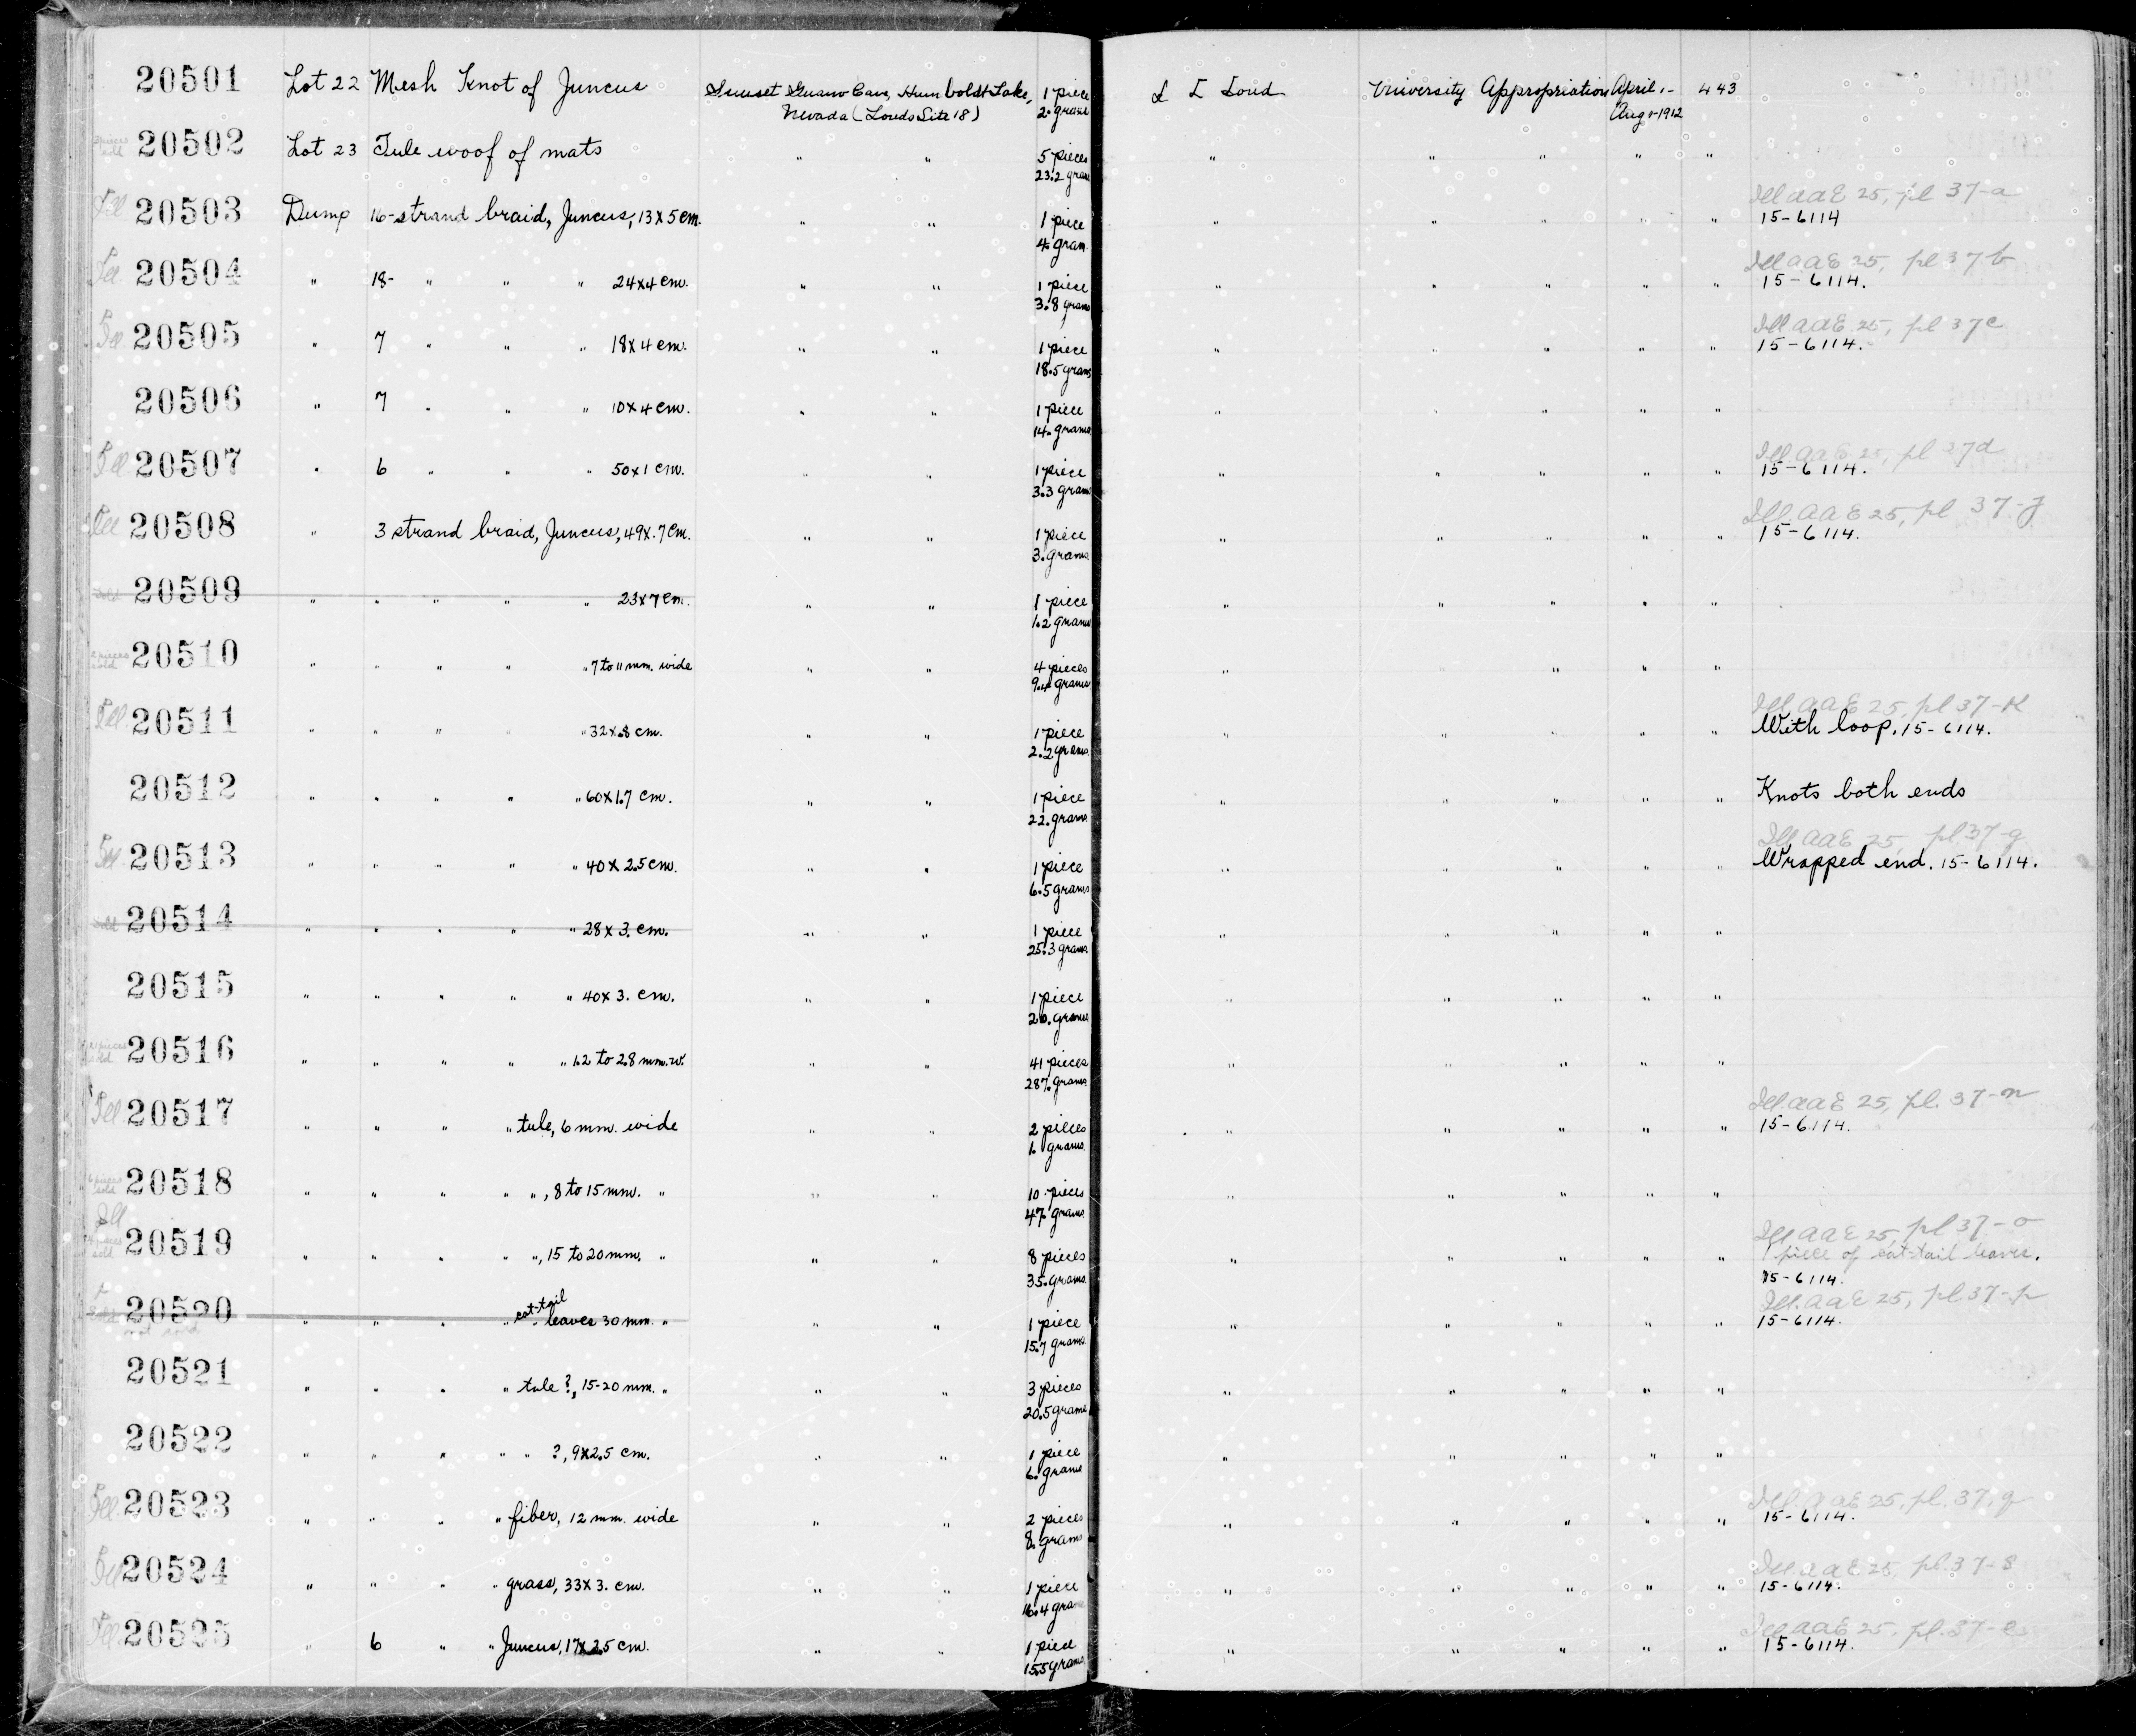 20501 Lot 22 Mesh Knot of Juncus Sunset Guano Cave, Humboldt Lake, 1 piece L L Loud University Appropriation April 1- 443
Nevada (Louds Site 18) 2. grams Aug 1-1912
20502 Lot 23 Tule woof of mats " " 5 pieces " " " " "
23.2 grams
Ill aaE 25, pl 37-a
Ill 20503 Dump 16-strand braid, Juncus, 13 x 5 cm. " " 1 piece " " " " " 15-6114
4. gram.
Ill aaE 25, pl 37 b
Ill 20504 " 18- " " " 24x4 cm. " " 1 piece " " " " " 15-6114.
3.8 grams
Ill aaE 25, pl 37c
Ill 20505 " 7 " " " 18x4 cm. " " 1 piece " " " " " 15-6114.
18.5 grams
20506 " 7 " " " 10x4 cm. " " 1 piece " " " " "
14. grams
Ill aaE 25, pl 37d
Ill 20507 " 6 " " " 50x1 cm. " " 1 piece " " " " " 15-6114.
3.3 grams
Ill. aaE 25, pl 37-j
Ill 20508 " 3 strand braid, Juncus, 49x.7 cm. " " 1 piece " " " " " 15-6114.
3. grams
Sold 20509 " " " " " 23x7 cm. " " 1 piece " " " " "
1.2 grams
2 pieces sold 20510 " " " " " 7 to 11 mm. wide " " 4 pieces " " " " "
9.4 grams
Ill. aaE 25, pl 37-K
Ill 20511 " " " " " 32x.8 cm. " " 1 piece " " " " " With loop. 15-6114.
2.2 grams
20512 " " " " " 60x1.7 cm. " " 1 piece " " " " " Knots both ends
22. grams
Ill aaE 25, pl 37-g
Ill 20513 " " " " " 40x2.5 cm. " " 1 piece " " " " " Wrapped end. 15-6114.
6.5 grams
Sold 20514 " " " " " 28x3. cm. " " 1 piece " " " " "
25.3 grams
20515 " " " " " 40x3. cm. " " 1 piece " " " " "
20. grams
pieces sold 20516 " " " " " 1.2 to 2.8 mm. w. " " 41 pieces " " " " "
287. grams
Ill. aaE 25, pl. 37-n
Ill. 20517 " " " " tule, 6 mm. wide " " 2 pieces " " " " " 15-6114.
1. grams
6 pieces sold 20518 " " " " ", 8 to 15 mm. " " " 10 pieces " " " " "
47. grams
Ill Ill aaE 25, pl 37-o
pieces sold 20519 " " " " ", 15 to 20 mm. " " " 8 pieces " " " " " 1 piece of cat-tail leaves.
35. grams 15-6114.
cat-tail Ill. aaE 25, pl 37-p
Sold 20520 " " " " " leaves 30 mm. " " " 1 piece " " " " " 15-6114.
not sold 15.7 grams
20521 " " " " tule ?, 15-20 mm. " " " 3 pieces " " " " "
20.5 grams
20522 " " " " " ?, 9x2.5 cm. " " 1 piece " " " " "
6. grams
Ill. aaE 25, pl. 37, q
Ill. 20523 " " " " fiber, 12 mm. wide " " 2 pieces " " " " " 15-6114.
8. grams
Ill. aaE 25, pl. 37-s
Ill 20524 " " " " grass, 33x3. cm. " " 1 piece " " " " " 15-6114.
16.4 gra
Ill aaE 25. pl. 37-e
Ill 20525 " 6 " " Juncus, 17x2.5 cm. " " 1 piece " " " " " 15-6114.
15.5 grams